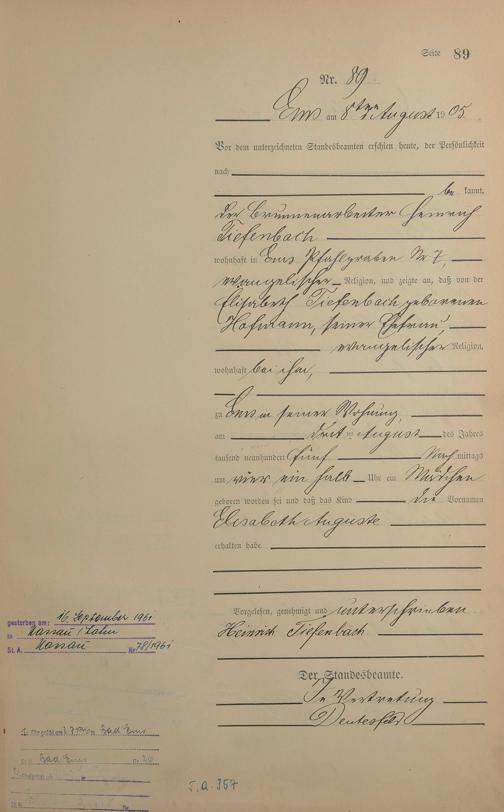 Seite 89
Nr. 89
Ems am 8ten August 1905
Vor dem unterzeichneten Standesbeamten erschien heute, der Persönlichkeit
nach
be kannt,
der Brunnenarbeiter Heinrich
Tiefenbach
wohnhaft in Ems Pfahlgraben Nr 7,
evangelischer Religion, und zeigte an, daß von der
Elisabeth Tiefenbach geborenen
Hofmann, seiner Ehefrau,
evangelischer Religion,
wohnhaft bei ihm,
zu Ems in seiner Wohnung,
am dritten August des Jahres
tausend neunhundert fünf Nach mittags
um vier ein halb Uhr ein Mädchen
geboren worden sei und daß das Kind die Vornamen
Elisabeth Auguste
erhalten habe.
Vorgelesen, genehmigt und unterschrieben
Heinrich Tiefenbach
Der Standesbeamte.
In Vertretung
gestorben am: 16. September 1961
in Nassau / Lahn
St. A. Nassau Nr 78/1961
Bad Ems
Bad Ems
J.A. 357